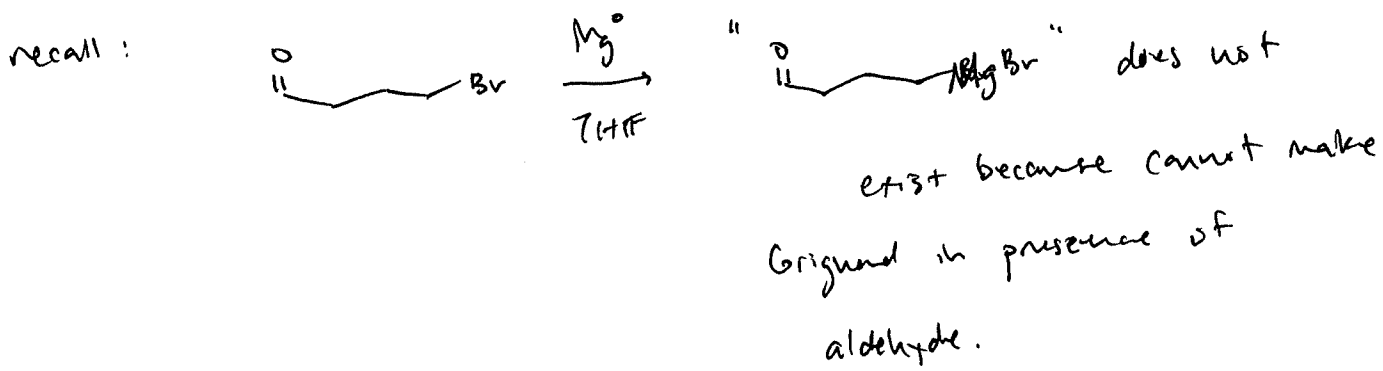 recall :
O Br
Mg°
THF
" O MgBr " does not
exist because cannot make
Grignard in presence of
aldehyde.